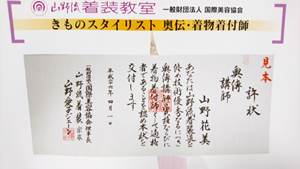 山野流 着装教室 一般財団法人 国際美容協会
きものスタイリスト 奥伝・着物着付師
見本
許状
奥傳
講師
山野花美
あなたは山野流着装道を
修め技術優秀なるにつき
奥傳講師の資格ならびに
着物着付師として適格
者であることを認め本状を
交付します
平成二十六年四月一日
一般財団法人国際美容協会理事長
山野流着装 宗家
山野愛子ジェーン